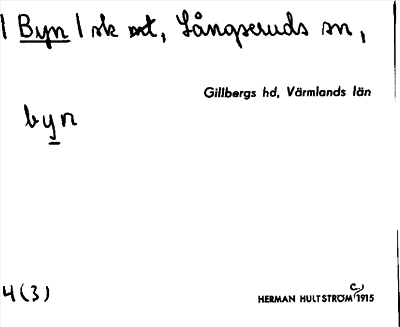 | Byn | sk ort, Långseruds sn,
Gillbergs hd, Värmlands län
byn
4 (3)
HERMAN HULTSTRÖM c. 1915